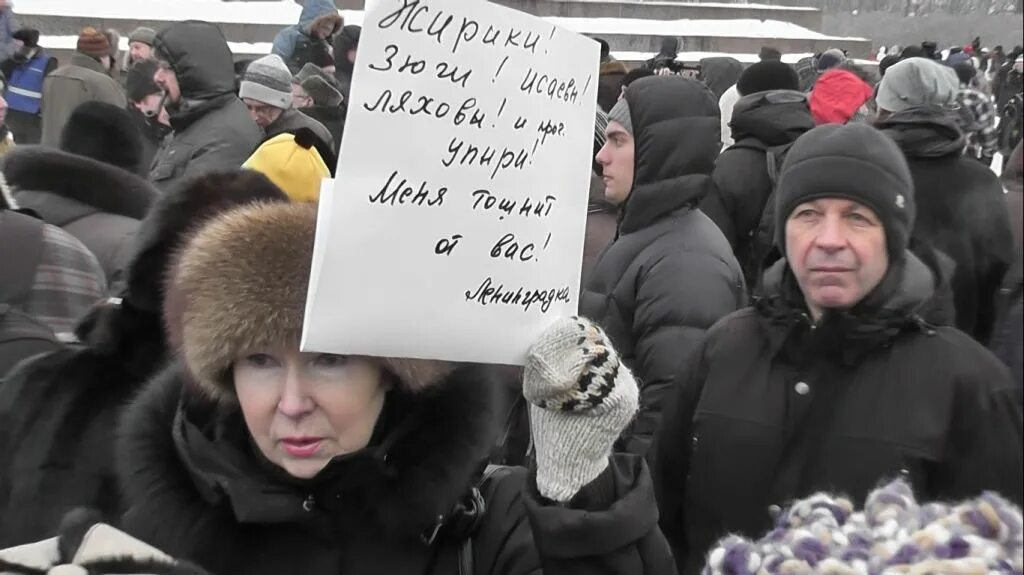 Жирики!
Зюги! Исаевы!
Ляховы! и проч.
упыри!
Меня тошнит
от вас!
Ленинградка